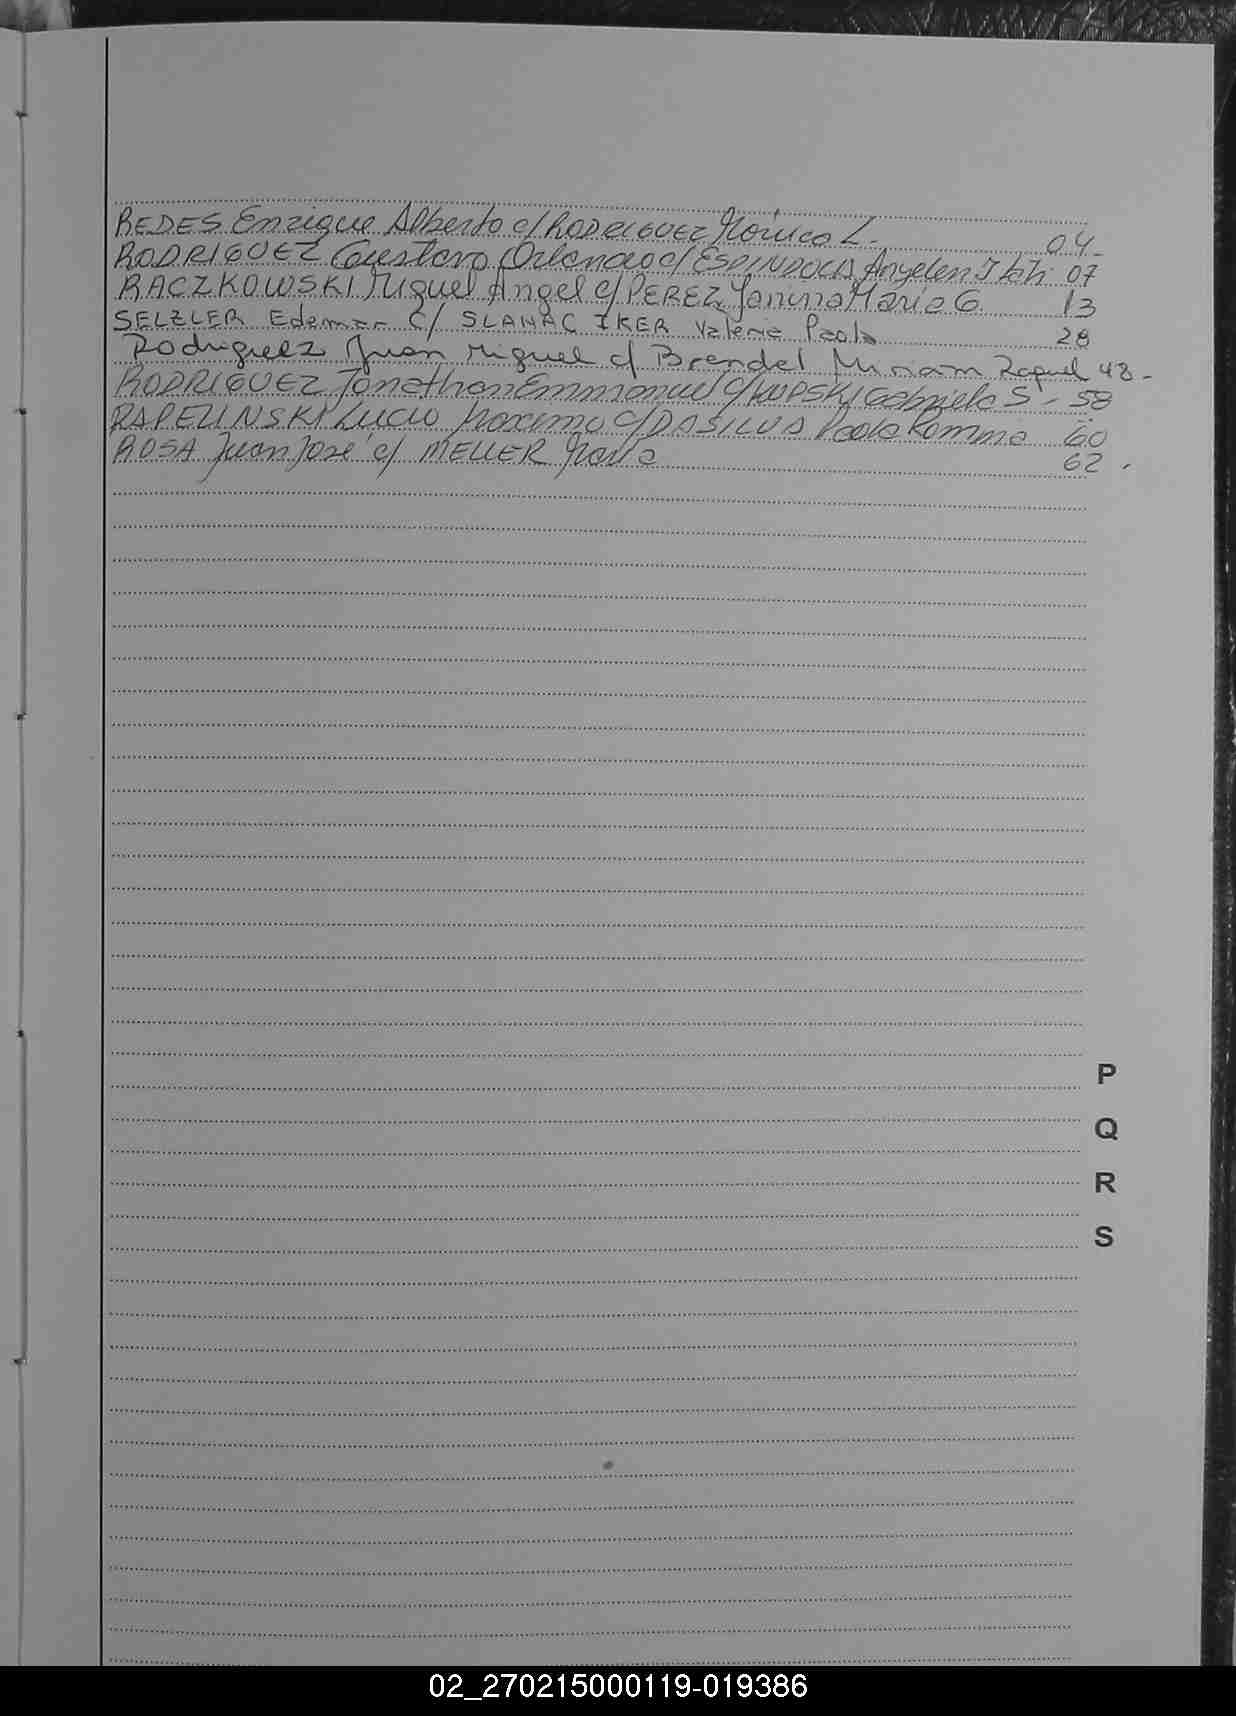 REDES Enrique Alberto c/ RODRIGUEZ Mónica L. 04.
RODRIGUEZ Gustavo Orlando c/ ESPINDOLA Anyelen Itatí 07
RACZKOWSKI Miguel Angel c/ PEREZ Yanina María G. 13
SELZLER Edemar c/ SLAMAC IKER Valeria Paola 28
Rodriguez Juan Miguel c/ Brendel Miriam Raquel 48-
RODRIGUEZ Jonathan Emmanuel c/ Gabriela S- 58
RAPELINSKI Lucio Maximo c/ DASILVA Paola Romina 60
ROSA Juan José c/ MELLER María 62.
P
Q
R
S
02_270215000119-019386